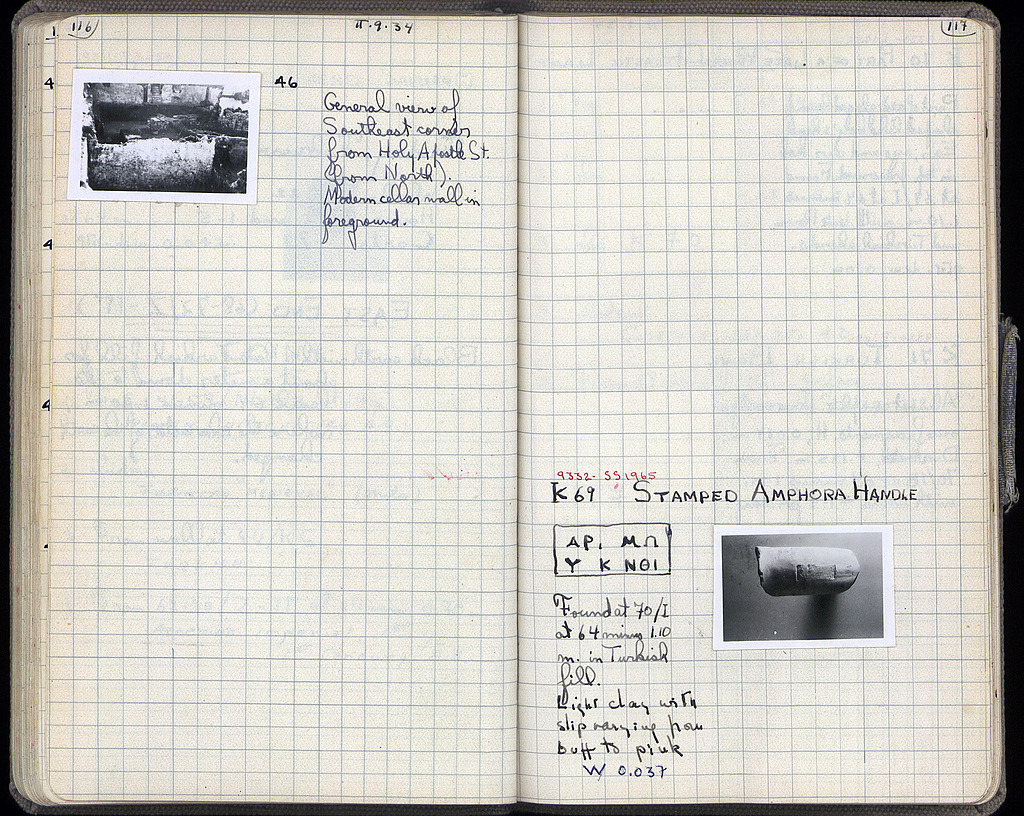 116
II.9.34
46
General view of
Southeast corner
from Holy Apostle St.
(from North).
Modern cellar wall in
foreground.
117
9332 - SS 1965
K 69 STAMPED AMPHORA HANDLE
ΑΡ. ΜΠ
Υ Κ ΝΘΙ
Found at 70/I
at 64 minus 1.10
m. in Turkish
fill.
Light clay with
slip varying from
buff to pink
W 0.037